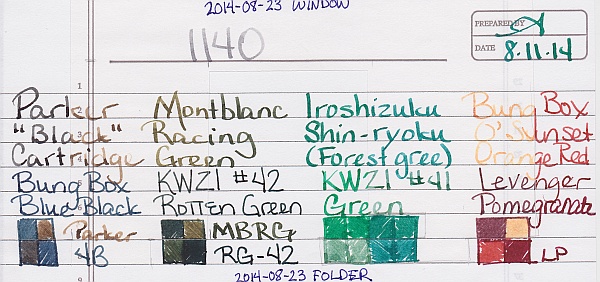 2014-08-23 WINDOW
1140
PREPARED BY
DATE 8.11.14
1
Parker Montblanc Iroshizuku Bung Box
"Black" Racing Shin-ryoku O'Sunset
Cartridge Green (Forest gree) Orange Red
Bung Box KWZI #42 KWZI #41 Levenger
Blue Black Rotten Green Green Pomegranate
Parker MBRG
4B RG-42 LP
2014-08-23 FOLDER